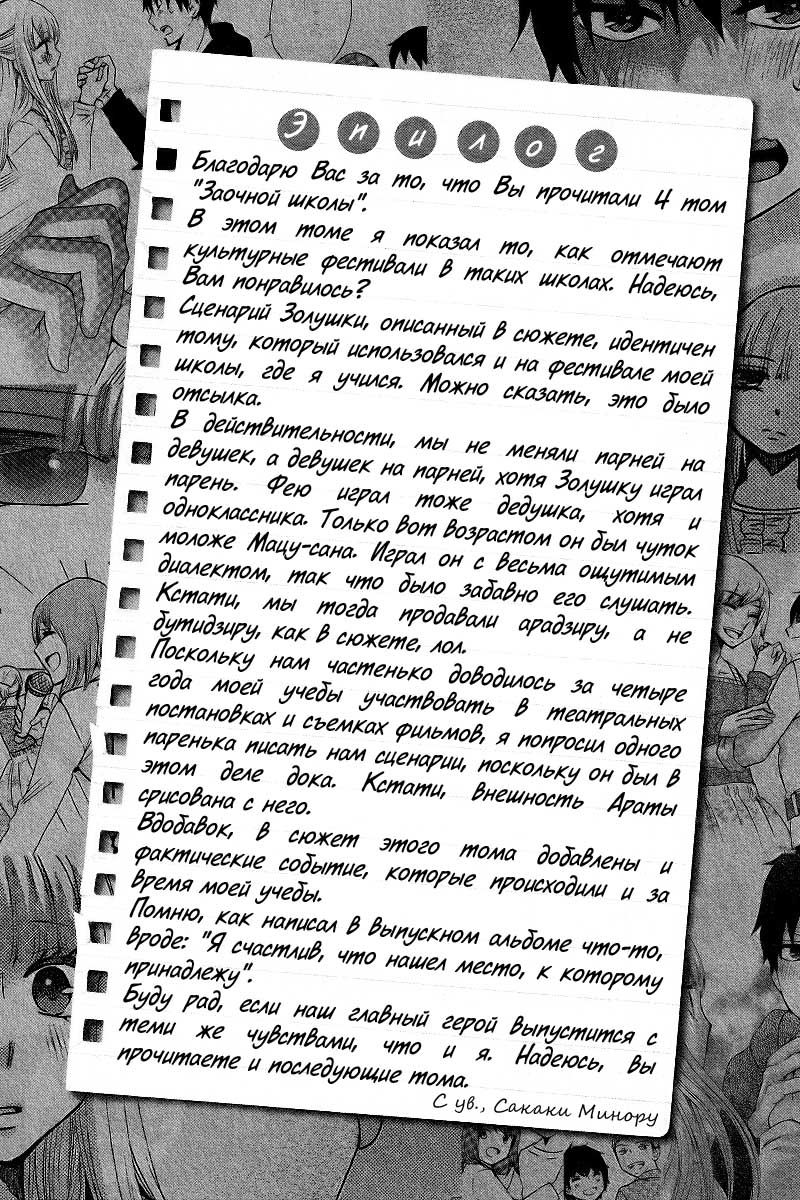 Эпилог
Благодарю Вас за то, что Вы прочитали 4 том
"Заочной школы".
В этом томе я показал то, как отмечают
культурные фестивали в таких школах. Надеюсь,
Вам понравилось?
Сценарий Золушки, описанный в сюжете, идентичен
тому, который использовался и на фестивале моей
школы, где я учился. Можно сказать, это было
отсылка.
В действительности, мы не меняли парней на
девушек, а девушек на парней, хотя Золушку играл
парень. Фею играл тоже дедушка, хотя и
одноклассника. Только вот возрастом он был чуток
моложе Мацу-сана. Играл он с весьма ощутимым
диалектом, так что было забавно его слушать.
Кстати, мы тогда продавали арадзиру, а не
бутидзиру, как в сюжете, лол.
Поскольку нам частенько доводилось за четыре
года моей учебы участвовать в театральных
постановках и съемках фильмов, я попросил одного
паренька писать нам сценарии, поскольку он был в
этом деле дока. Кстати, внешность Араты
срисована с него.
Вдобавок, в сюжет этого тома добавлены и
фактические событие, которые происходили и за
время моей учебы.
Помню, как написал в выпускном альбоме что-то,
вроде: "Я счастлив, что нашел место, к которому
принадлежу".
Буду рад, если наш главный герой выпустится с
теми же чувствами, что и я. Надеюсь, вы
прочитаете и последующие тома.
С ув., Сакаки Минору